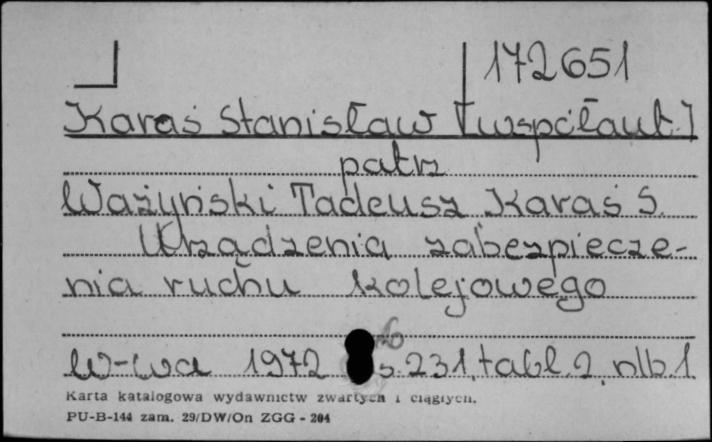 172651
Karaś Stanisław [współaut.]
patrz
Ważyński Tadeusz Karaś S.
Urządzenia zabezpiecze-
nia ruchu kolejowego
W-wa 1972 s. 231, tabl. 2, nlb. 1
Karta katalogowa wydawnictw zwartych i ciągłych.
PU-B-144 zam. 29/DW/On ZGG - 204